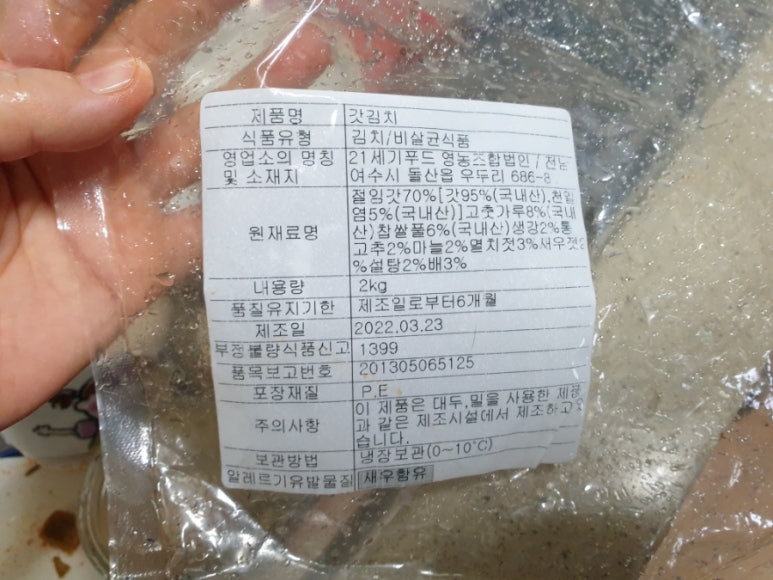 제품명 갓김치
식품유형 김치/비살균식품
영업소의 명칭 21세기푸드 영농조합법인 / 전남
및 소재지 여수시 돌산읍 우두리 686-8
원재료명 절임갓70%[갓95%(국내산),천일
염5%(국내산)]고춧가루8%(국내
산)찹쌀풀6%(국내산)생강2%통
고추2%마늘2%멸치젓3%새우젓2
%설탕2%배3%
내용량 2kg
품질유지기한 제조일로부터6개월
제조일 2022.03.23
부정불량식품신고 1399
품목보고번호 201305065125
포장재질 P.E
주의사항 이 제품은 대두,밀을 사용한 제품
과 같은 제조시설에서 제조하고
습니다.
보관방법 냉장보관(0~10℃)
알레르기유발물질 새우함유